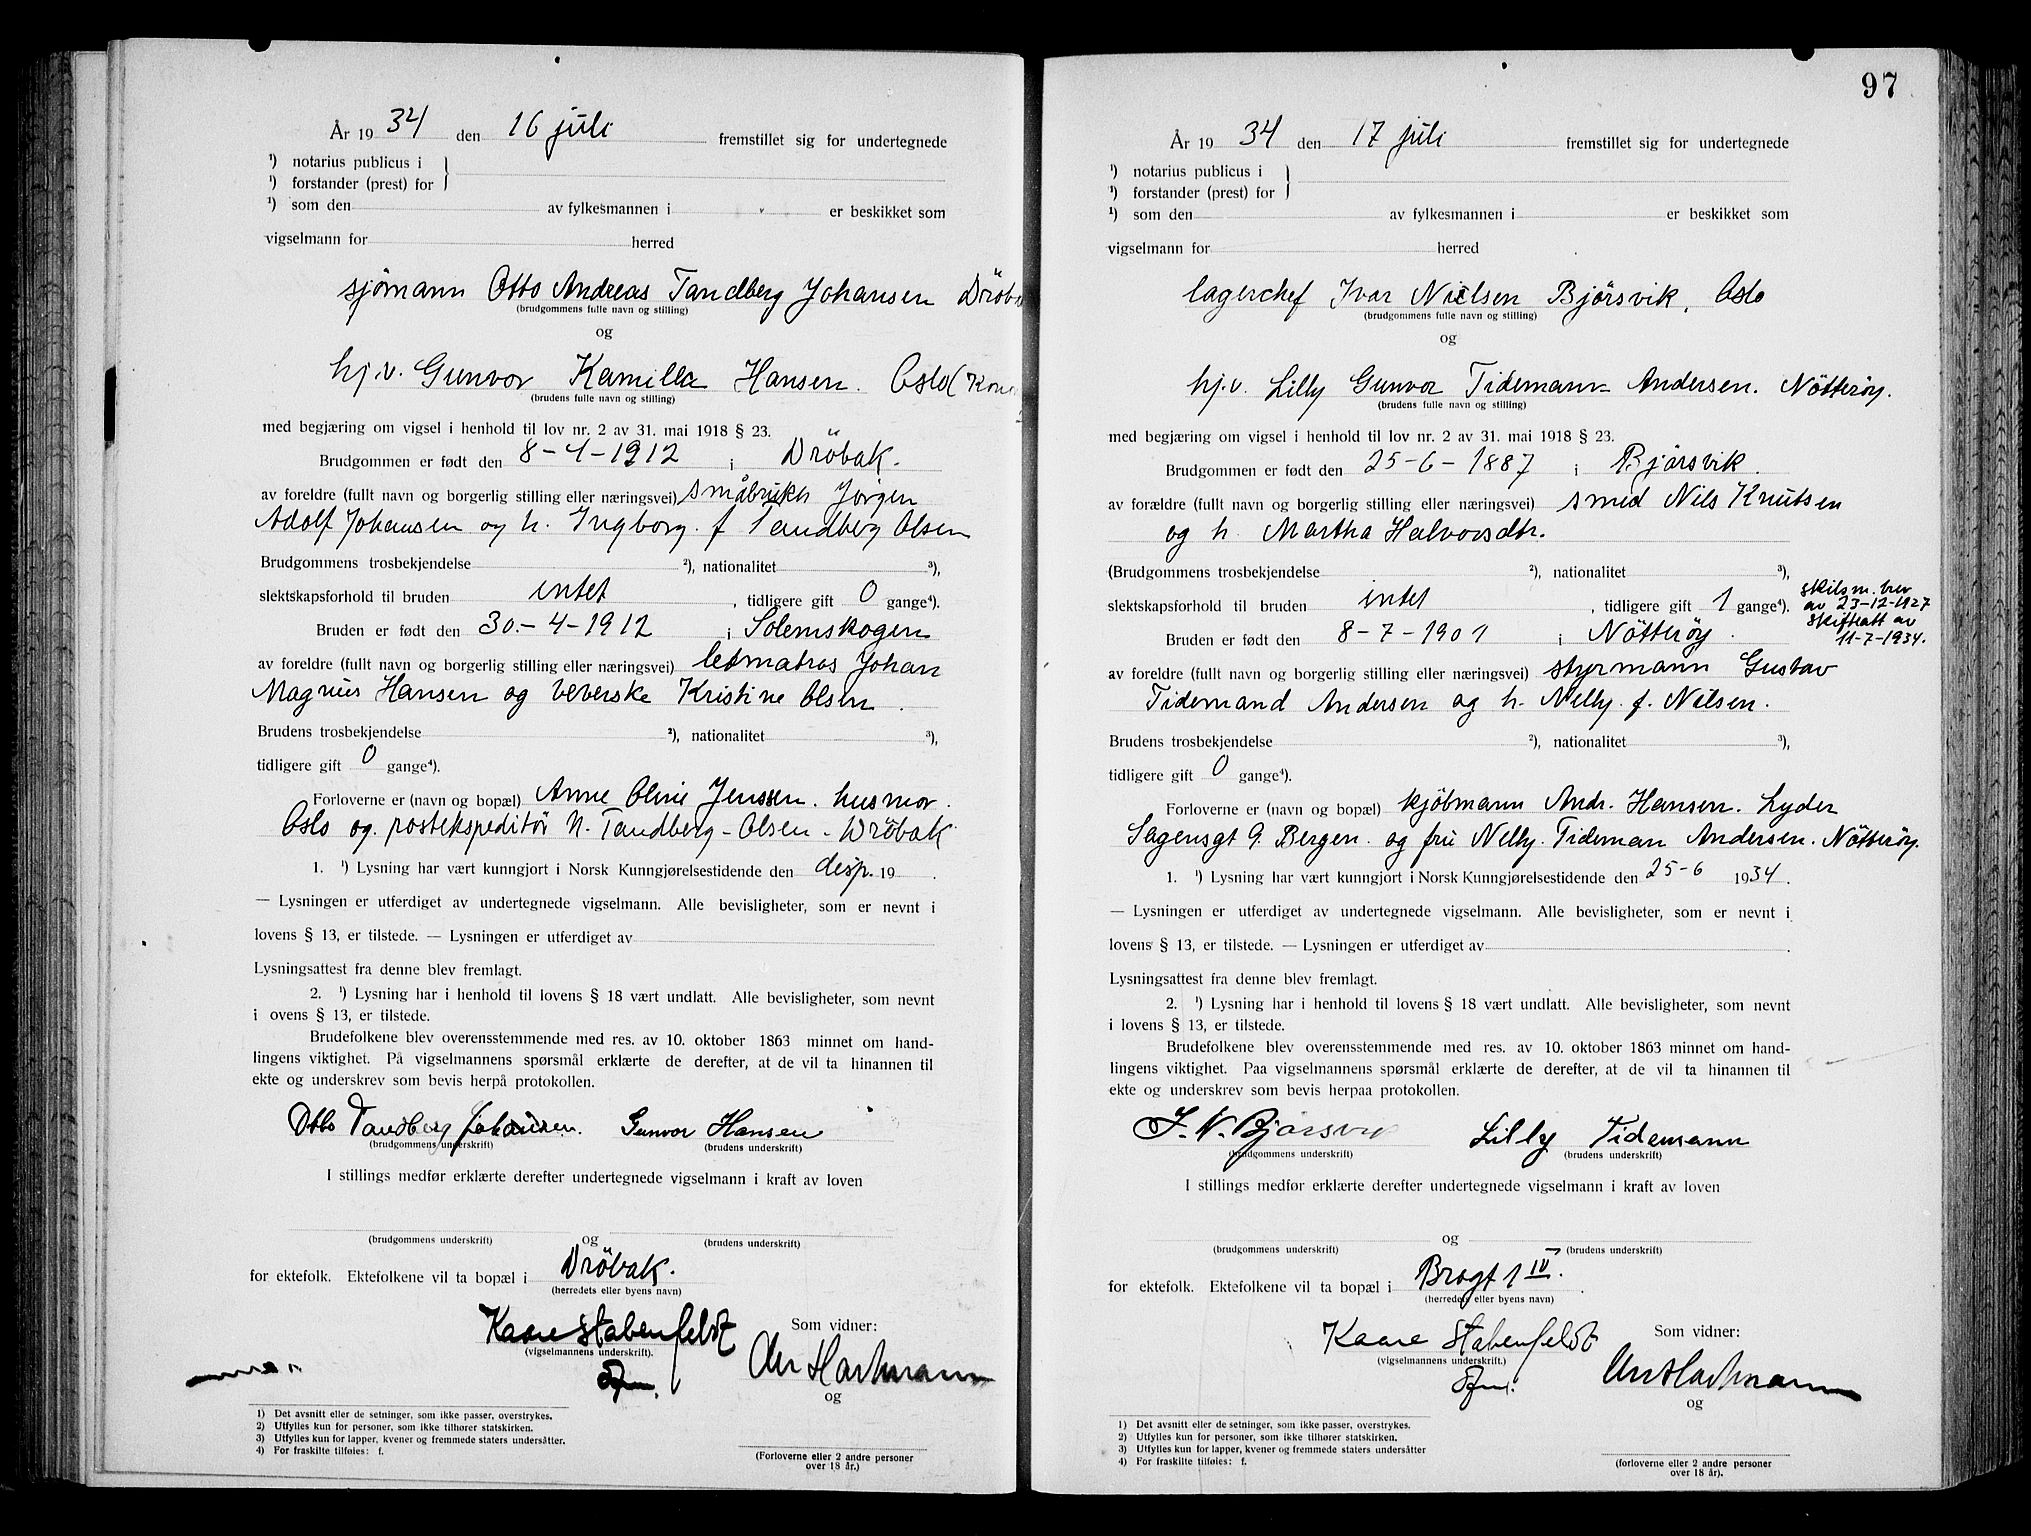 År 1934 den 16 juli fremstillet sig for undertegnede
¹) notarius publicus i
¹) forstander (prest) for
¹) som den av fylkesmannen i er beskikket som
vigselmann for herred
sjömann Otto Andreas Tandberg Johansen Dröba
(brudgommens fulle navn og stilling)
og
hj.v. Gunvor Kamilla Hansen. Oslo (
(brudens fulle navn og stilling)
med begjæring om vigsel i henhold til lov nr. 2 av 31. mai 1918 § 23.
Brudgommen er født den 8-4-1912 i Dröbak.
av foreldre (fullt navn og borgerlig stilling eller næringsvei) småbruker Jörgen
Adolf Johansen og h. Ingborg. f Tandberg Olsen
Brudgommens trosbekjendelse ²), nationalitet ³),
slektskapsforhold til bruden intet, tidligere gift 0 gange⁴).
Bruden er født den 30.-4-1912 i Solemskogen
av foreldre (fullt navn og borgerlig stilling eller næringsvei) letmatros Johan
Magnus Hansen og veverske Kristine Olsen.
Brudens trosbekjendelse ²), nationalitet ³),
tidligere gift 0 gange⁴).
Forloverne er (navn og bopæl) Anne Oline Jenssen. husmor.
Oslo og. postekspeditör N. Tandberg-Olsen - Dröbak
1. ¹) Lysning har vært kunngjort i Norsk Kunngjørelsestidende den desp. 19 .
— Lysningen er utferdiget av undertegnede vigselmann. Alle bevisligheter, som er nevnt i
lovens § 13, er tilstede. — Lysningen er utferdiget av
Lysningsattest fra denne blev fremlagt.
2. ¹) Lysning har i henhold til lovens § 18 vært undlatt. Alle bevisligheter, som nevnt
i ovens § 13, er tilstede.
Brudefolkene blev overensstemmende med res. av 10. oktober 1863 minnet om hand-
lingens viktighet. På vigselmannens spørsmål erklærte de derefter, at de vil ta hinannen til
ekte og underskrev som bevis herpå protokollen.
Otto Tandberg Johansen. Gunvor Hansen
(brudgommens underskrift) (brudens underskrift)
I stillings medfør erklærte derefter undertegnede vigselmann i kraft av loven
og
(brudgommens underskrift) (brudens underskrift)
for ektefolk. Ektefolkene vil ta bopæl i Dröbak.
(herredets eller byens navn)
Kaare Stabenfeldt
(vigselmannens underskrift).
Som vidner:
Hartmann
og
1) Det avsnitt eller de setninger, som ikke passer, overstrykes.
2) Utfylles kun for personer, som ikke tilhører statskirken.
3) Utfylles kun for lapper, kvener og fremmede staters undersåtter.
4) For fraskilte tilføies: f.
(Forloverne eller 2 andre personer
over 18 år.)
97
År 1934 den 17 juli fremstillet sig for undertegnede
¹) notarius publicus i
¹) forstander (prest) for
¹) som den av fylkesmannen i er beskikket som
vigselmann for herred
lagerchef Ivar Nielsen Bjørsvik, Oslo
(brudgommens fulle navn og stilling)
og
hj.v. Lilly Gunvor Tidemann Andersen. Nötteröy.
(brudens fulle navn og stilling)
med begjæring om vigsel i henhold til lov nr. 2 av 31. mai 1918 § 23.
Brudgommen er født den 25-6-1887 i Bjørsvik.
av forældre (fullt navn og borgerlig stilling eller næringsvei) smed Nils Knutsen
og h. Martha Halvorsdtr.
(Brudgommens trosbekjendelse ²), nationalitet ³),
slektskapsforhold til bruden intet, tidligere gift 1 gange⁴). skilsm. brev
av 23-12-1927
skifteatt av
11-7-1934.
Bruden er født den 8-7-1901 i Nötteröy.
av foreldre (fullt navn og borgerlig stilling eller næringsvei) styrmann Gustav
Tidemand Andersen og h. Nelly. f. Nilsen.
Brudens trosbekjendelse ²), nationalitet ³),
tidligere gift 0 gange⁴).
Forloverne er (navn og bopæl) kjöbmann Andr. Hansen. Lyder
Sagensgt 9. Bergen. og fru Nelly. Tideman Andersen. Nötteröy.
1. ¹) Lysning har vært kunngjort i Norsk Kunngjørelsestidende den 25-6 1934.
— Lysningen er utferdiget av undertegnede vigselmann. Alle bevisligheter, som er nevnt i
lovens § 13, er tilstede. — Lysningen er utferdiget av .
Lysningsattest fra denne blev fremlagt.
2. ¹) Lysning har i henhold til lovens § 18 vært undlatt. Alle bevisligheter, som nevnt
i lovens § 13, er tilstede.
Brudefolkene blev overensstemmende med res. av 10. oktober 1863 minnet om hand-
lingens viktighet. Paa vigselmannens spørsmål erklærte de derefter, at de vil ta hinannen til
ekte og underskrev som bevis herpaa protokollen.
I. N. Bjørsvik Lilly Tidemann
(brudgommens underskrift) (brudens underskrift)
I stillings medfør erklærte derefter undertegnede vigselmann i kraft av loven
og
(brudgommens underskrift) (brudens underskrift)
for ektefolk. Ektefolkene vil ta bopæl i Brogt 1 IV.
(herredets eller byens navn)
Kaare Stabenfeldt
(vigselmannens underskrift.)
Som vidner:
Hartmann
og
1) Det avsnitt eller de setninger, som ikke passer, overstrykes.
2) Utfylles kun for personer, som ikke tilhører statskirken.
3) Utfylles kun for lapper, kvener og fremmede staters undersåtter
4) For fraskilte tilføies: f.
(forloverne eller 2 andre personer
over 18 år).